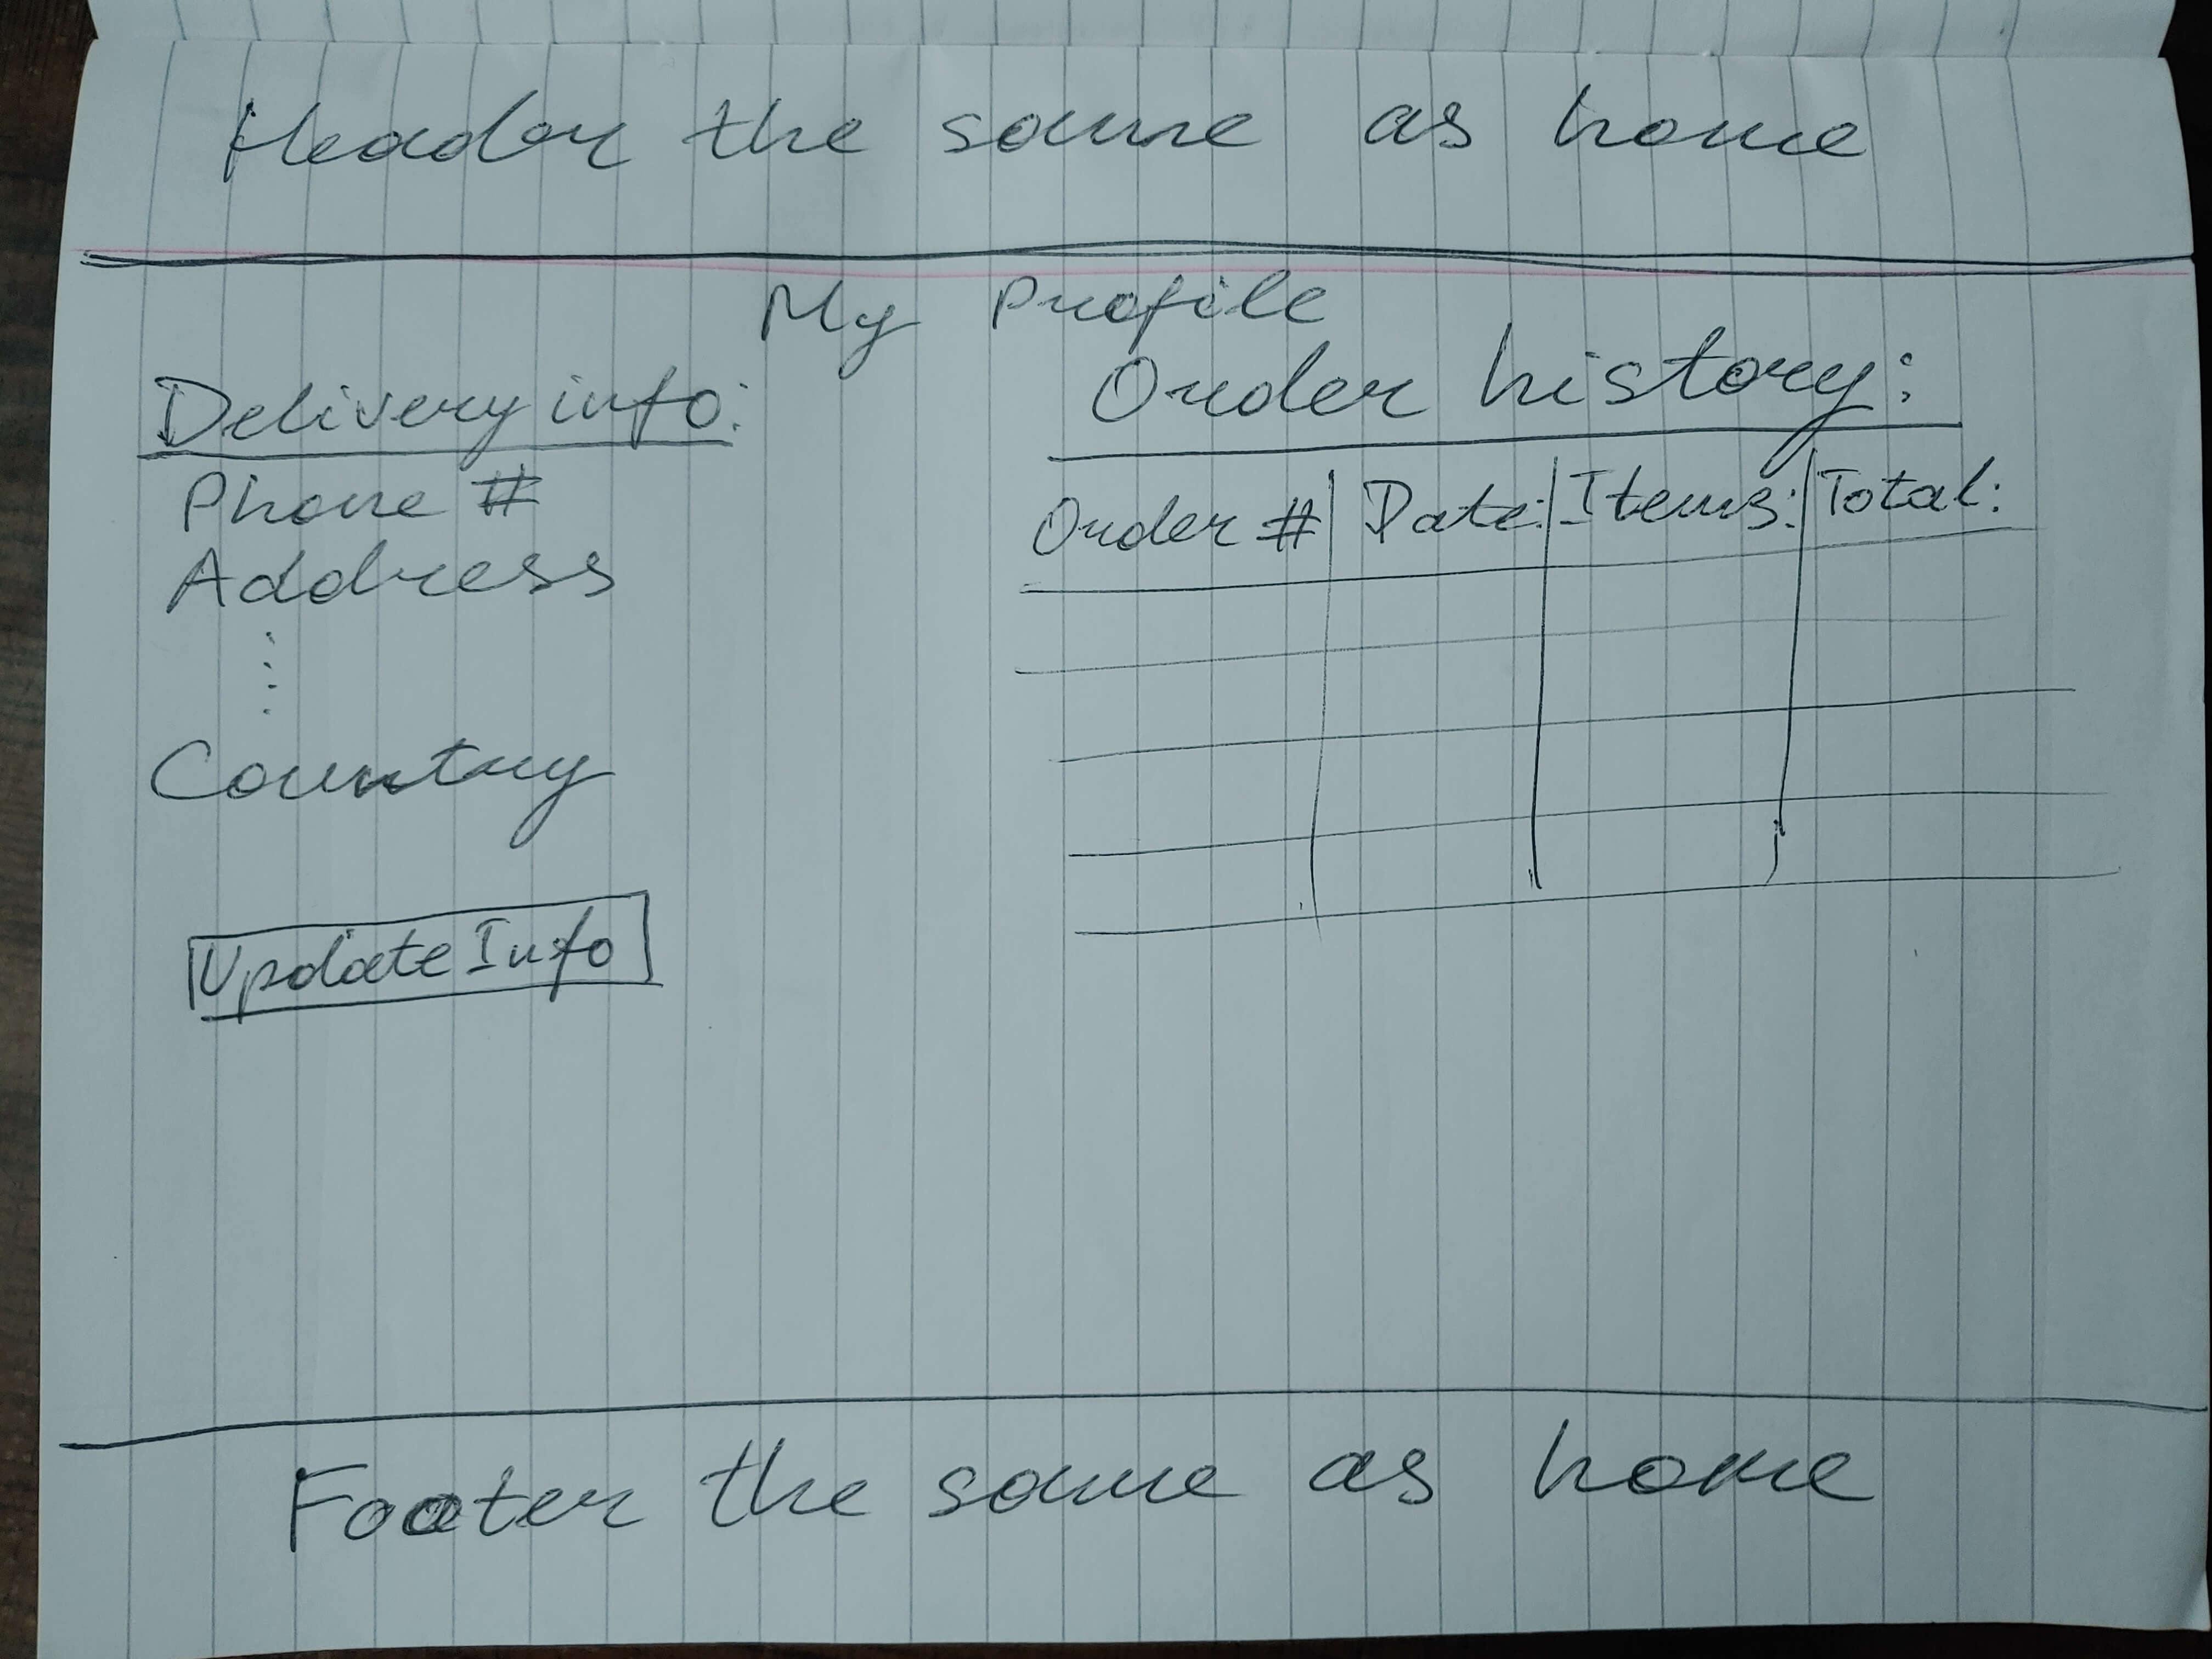 Header the same as home
My Profile
Delivery info:
Phone #
Address
Country
Update Info
Order history:
Order # Date: Items: Total:
Footer the same as home